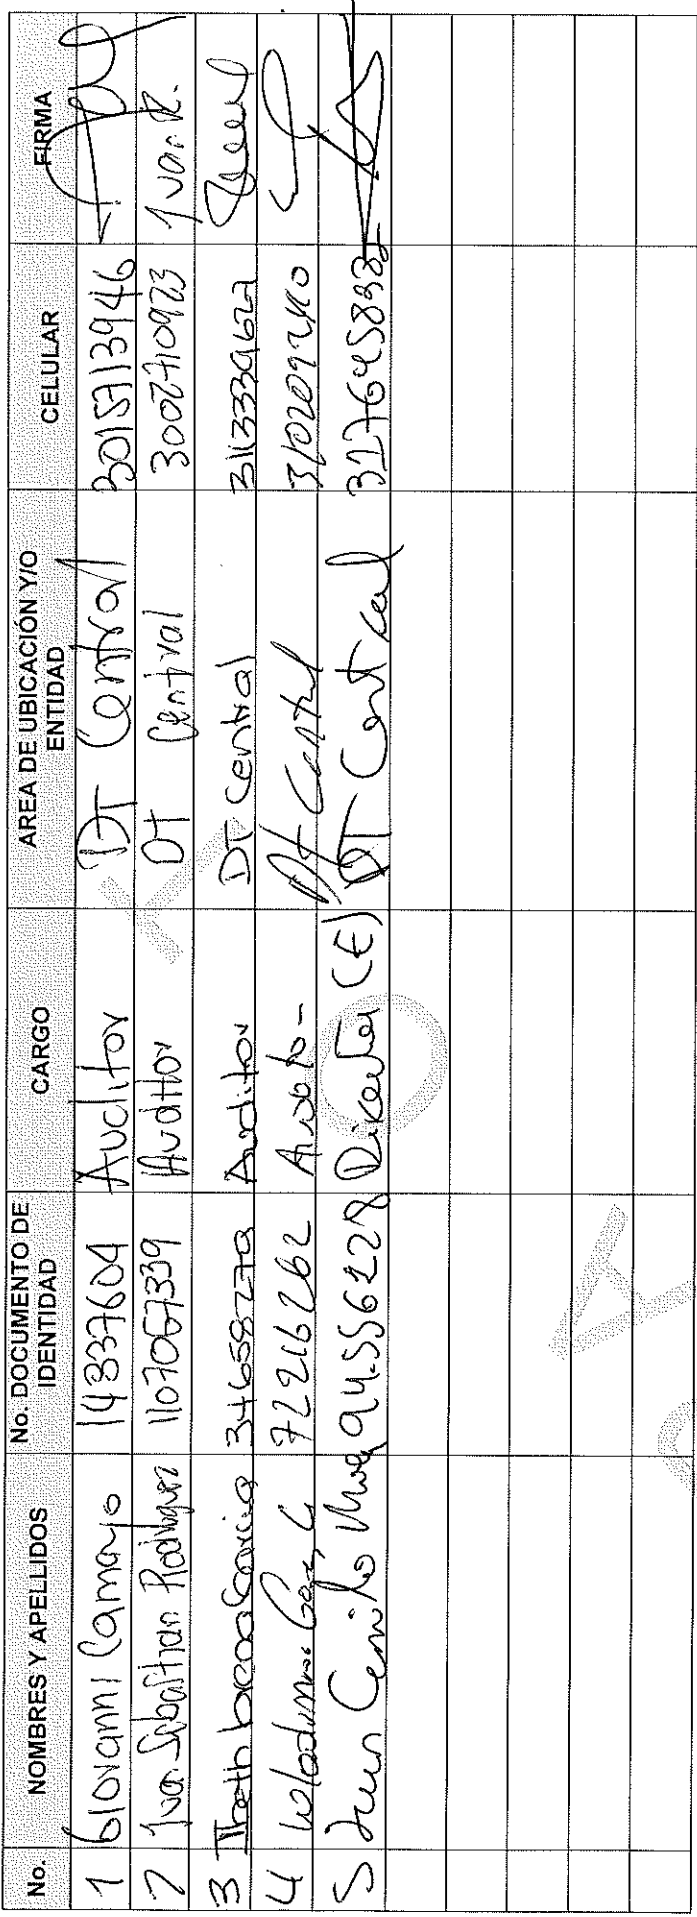 No. NOMBRES Y APELLIDOS No. DOCUMENTO DE IDENTIDAD CARGO AREA DE UBICACIÓN Y/O ENTIDAD CELULAR FIRMA
1 Giovanni Camayo 14837604 Auditor DT Central 3015713946
2 Juan Sebastian Rodriguez 1107067339 Auditor DT Central 3002710923 Juan R.
3 Garcia 34658279 Auditor DT Central 3113339627
4 72216262 Auditor DT Central 3102092410
5 Juan Camilo 94.556228 Director (E) DT Central